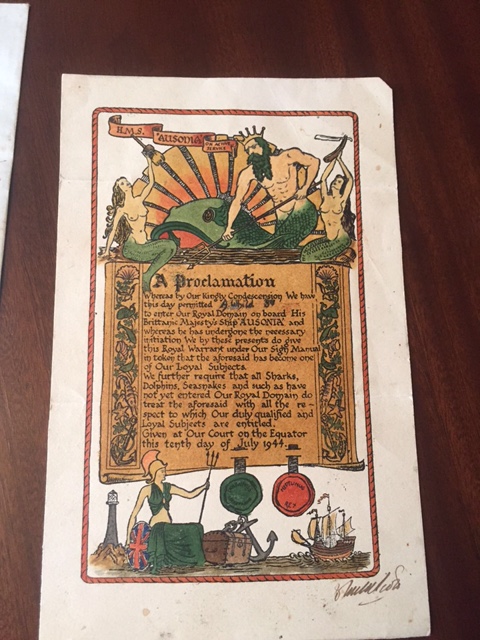 H.M.S. "AUSONIA" ON ACTIVE SERVICE
A Proclamation
Whereas by Our Kingly Condescension We have
this day permitted
to enter Our Royal Domain on board His
Brittanic Majesty's Ship "AUSONIA" and
whereas he has undergone the necessary
initiation We by these presents do give
this Royal Warrant under Our Sign Manual
in token that the aforesaid has become one
of Our Loyal Subjects.
We further require that all Sharks,
Dolphins, Seasnakes and such as have
not yet entered Our Royal Domain do
treat the aforesaid with all the re-
spect to which Our duly qualified and
Loyal Subjects are entitled.
Given at Our Court on the Equator
this tenth day of July 1944.
NEPTUNUS
REX